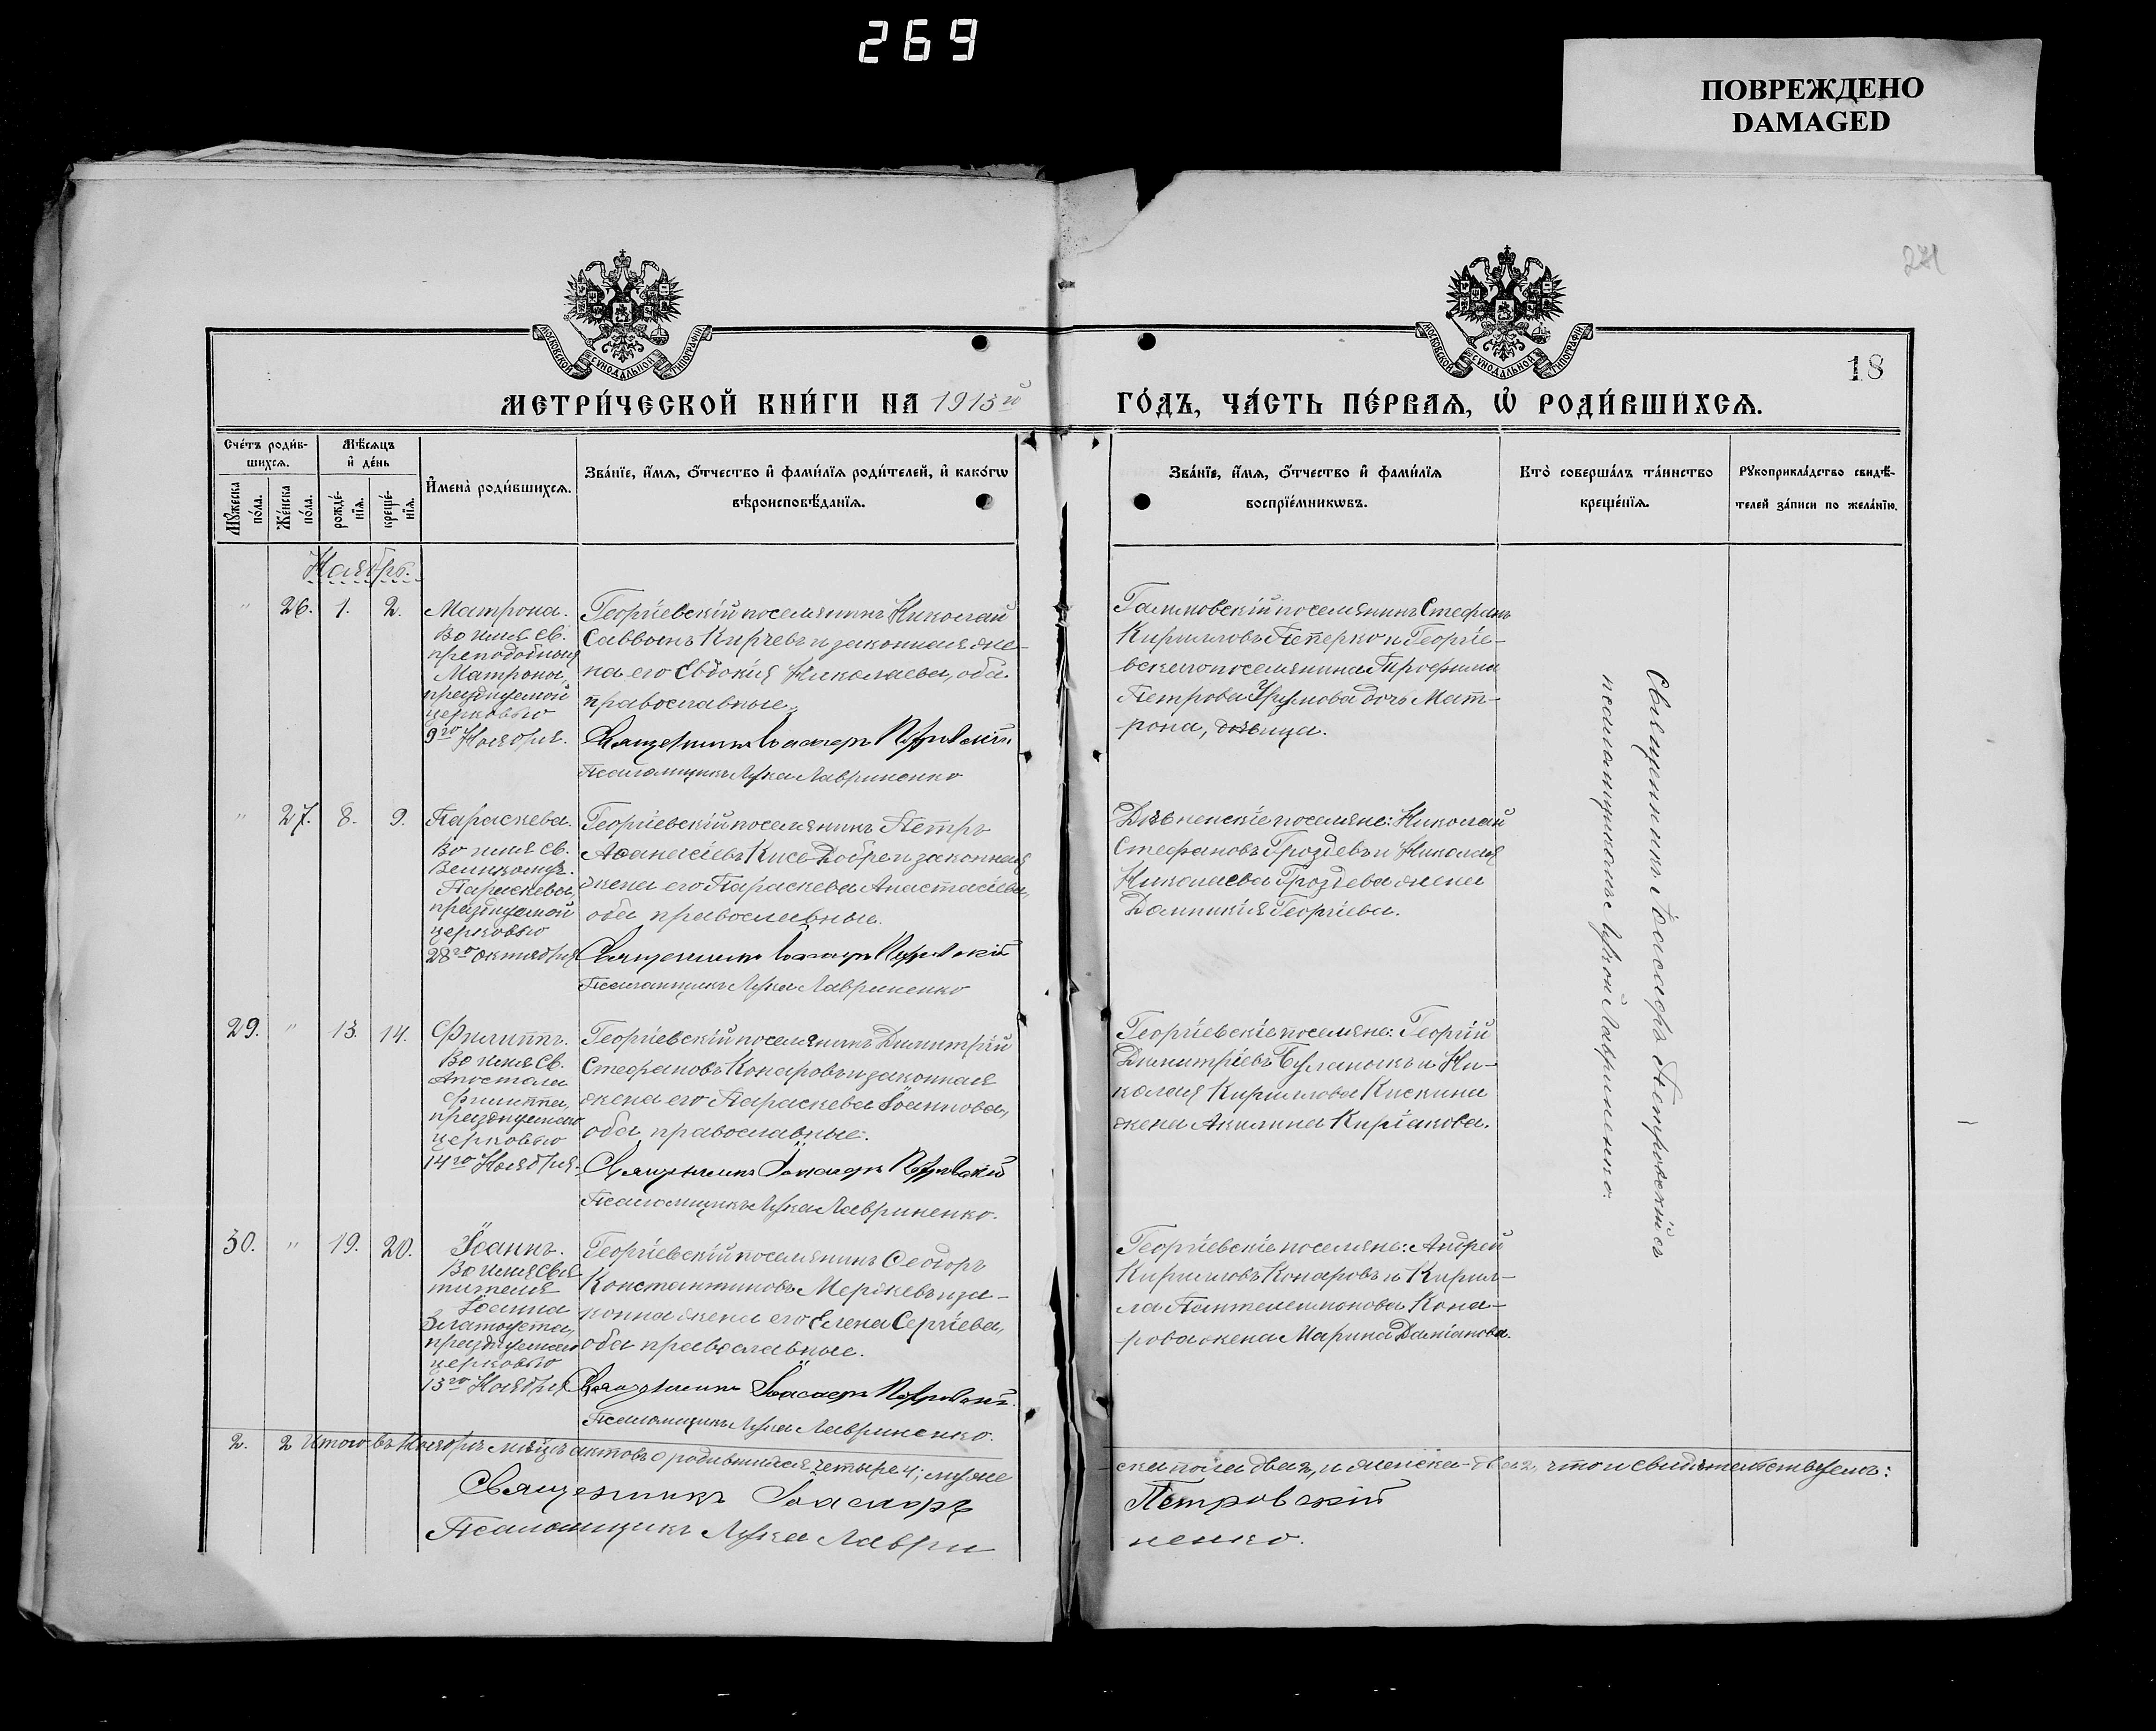 269
ПОВРЕЖДЕНО
DAMAGED
271
МОСКОВСКОЙ СУНОДАЛЬНОЙ ТИПОГРАФІИ
МОСКОВСКОЙ СУНОДАЛЬНОЙ ТИПОГРАФІИ
18
МЕТРИ́ЧЕСКОЙ КНИ́ГИ НА 1915й
ГО́ДЪ, ЧА́СТЬ ПЕ́РВАЯ, Ѡ РОДИ́ВШИХСЯ.
Сче́тъ роди́в-
шихся.
Мѣ́сяцъ
и҆ де́нь
Му́жеска
по́ла.
Же́нска
по́ла.
рожде́-
нїя.
креще́-
нїя.
И҆мена̀ роди́вшихся.
Зва́нїе, и҆́мя, ѻ҆́тчество и҆ фами́лїя роди́телей, и҆ како́гѡ
вѣроисповѣ́данїя.
Зва́нїе, и҆́мя, ѻ҆́тчество и҆ фами́лїя
воспрїе́мникѡвъ.
Кто̀ соверша́лъ та́инство
креще́нїя.
Рꙋкоприкла́дство свидѣ́-
телей за́писи по жела́нїю.
Ноябрь.
" 26. 1. 2.
Матрона.
Во имя св.
преподобныя
Матроны,
празднуемой
церковью
9го Ноября.
Георгіевскій поселянинъ Николай
Саввовъ Кирчевъ и законная же-
на его Евдокія Николаева, оба
православные.
Священникъ Іоасафъ Петровскій
Псаломщикъ Лука Лавриненко
Стефанъ
Кирилловъ Пеперко и Георгіе-
вскаго поселянина Трофима
Петрова Урумова дочь Мат-
рона, дѣвица.
" 27. 8. 9.
Параскева.
Во имя св.
Великомуч.
Параскевы,
празднуемой
церковью
28го октября
Георгіевскій поселянинъ Петръ
Аѳанасіевъ Кисе-Добрев и законная
жена его Параскева Анастасіева,
оба православные.
Священникъ Іоасафъ Петровскій
Псаломщикъ Лука Лавриненко
поселяне: Николай
Стефановъ Гроздевъ и Николая
Николаева Гроздева жена
Домникія Георгіева.
29. " 13. 14.
Филиппъ.
Во имя Св.
Апостола
Филиппа,
празднуемаго
церковью
14го Ноября.
Георгіевскій поселянинъ Димитрій
Стефановъ Конаровъ и законная
жена его Параскева Іоаннова,
оба православные.
Священникъ Іоасафъ Петровскій
Псаломщикъ Лука Лавриненко.
Георгіевскіе поселяне: Георгій
Димитріевъ и Ни-
колая Кириллова Кискина
жена Акилина Киріакова.
30. " 19. 20.
Іоаннъ.
Во имя Свя-
тителя
Іоанна
Златоуста,
празднуемаго
церковью
13го Ноября
Георгіевскій поселянинъ Ѳеодоръ
Константиновъ Мержевъ и за-
конна жена его Елена Сергіева,
оба православные.
Священникъ Іоасафъ Петровскій.
Псаломщикъ Лука Лавриненко.
Георгіевскіе поселяне: Андрей
Кирилловъ Конаровъ и Кирил-
ла Пантелеимонова Кона-
рова жена Марина Даміанова.
Священникъ Іоасафъ Петровскій съ
псаломщикомъ Лукой Лавриненко.
2. 2 Итого въ Ноябрѣ мѣсяцѣ актовъ о родившихся четыре 4; муже
ска пола два 2, и женска - два 2, что и свидѣтельствуемъ:
Священникъ Іоасафъ
Петровскій
Псаломщикъ Лука Лаври
ненко.